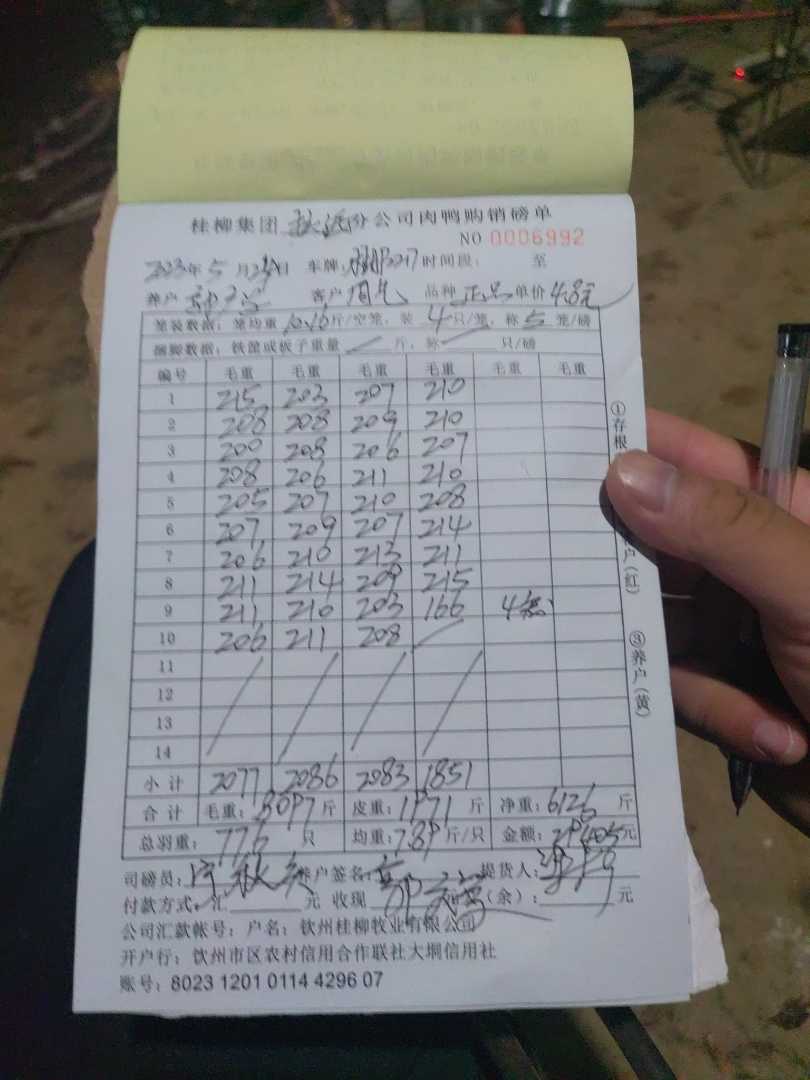 桂柳集团 分公司肉鸭购销磅单
NO 0006992
2023年5月24日 车牌: 2017 时间段: 至
养户 客户 周先 品种 正品 单价 4.8元
笼装数据: 笼均重 10.16斤/空笼, 装 4只/笼, 称5笼/磅
捆脚数据: 铁篮或板子重量 斤, 称 只/磅
编号 毛重 毛重 毛重 毛重 毛重 毛重
1 215 203 207 210
2 208 208 209 210
3 200 208 206 207
4 208 206 211 210
5 205 207 210 208
6 207 209 207 214
7 206 210 213 211
8 211 214 209 215
9 211 210 203 166 4笼
10 206 211 208
11
12
13
14
小计 2077 2086 2083 1851
合计 毛重: 8097斤 皮重: 1971斤 净重: 6126斤
总羽重: 776 只 均重: 7.89斤/只 金额: 29405元
司磅员: 养户签名: 提货人:
付款方式: 汇 元 收现 (余): 元
公司汇款帐号: 户名: 钦州桂柳牧业有限公司
开户行: 钦州市区农村信用合作联社大垌信用社
账号: 8023 1201 0114 4296 07
①存根
户(红)
③养户(黄)